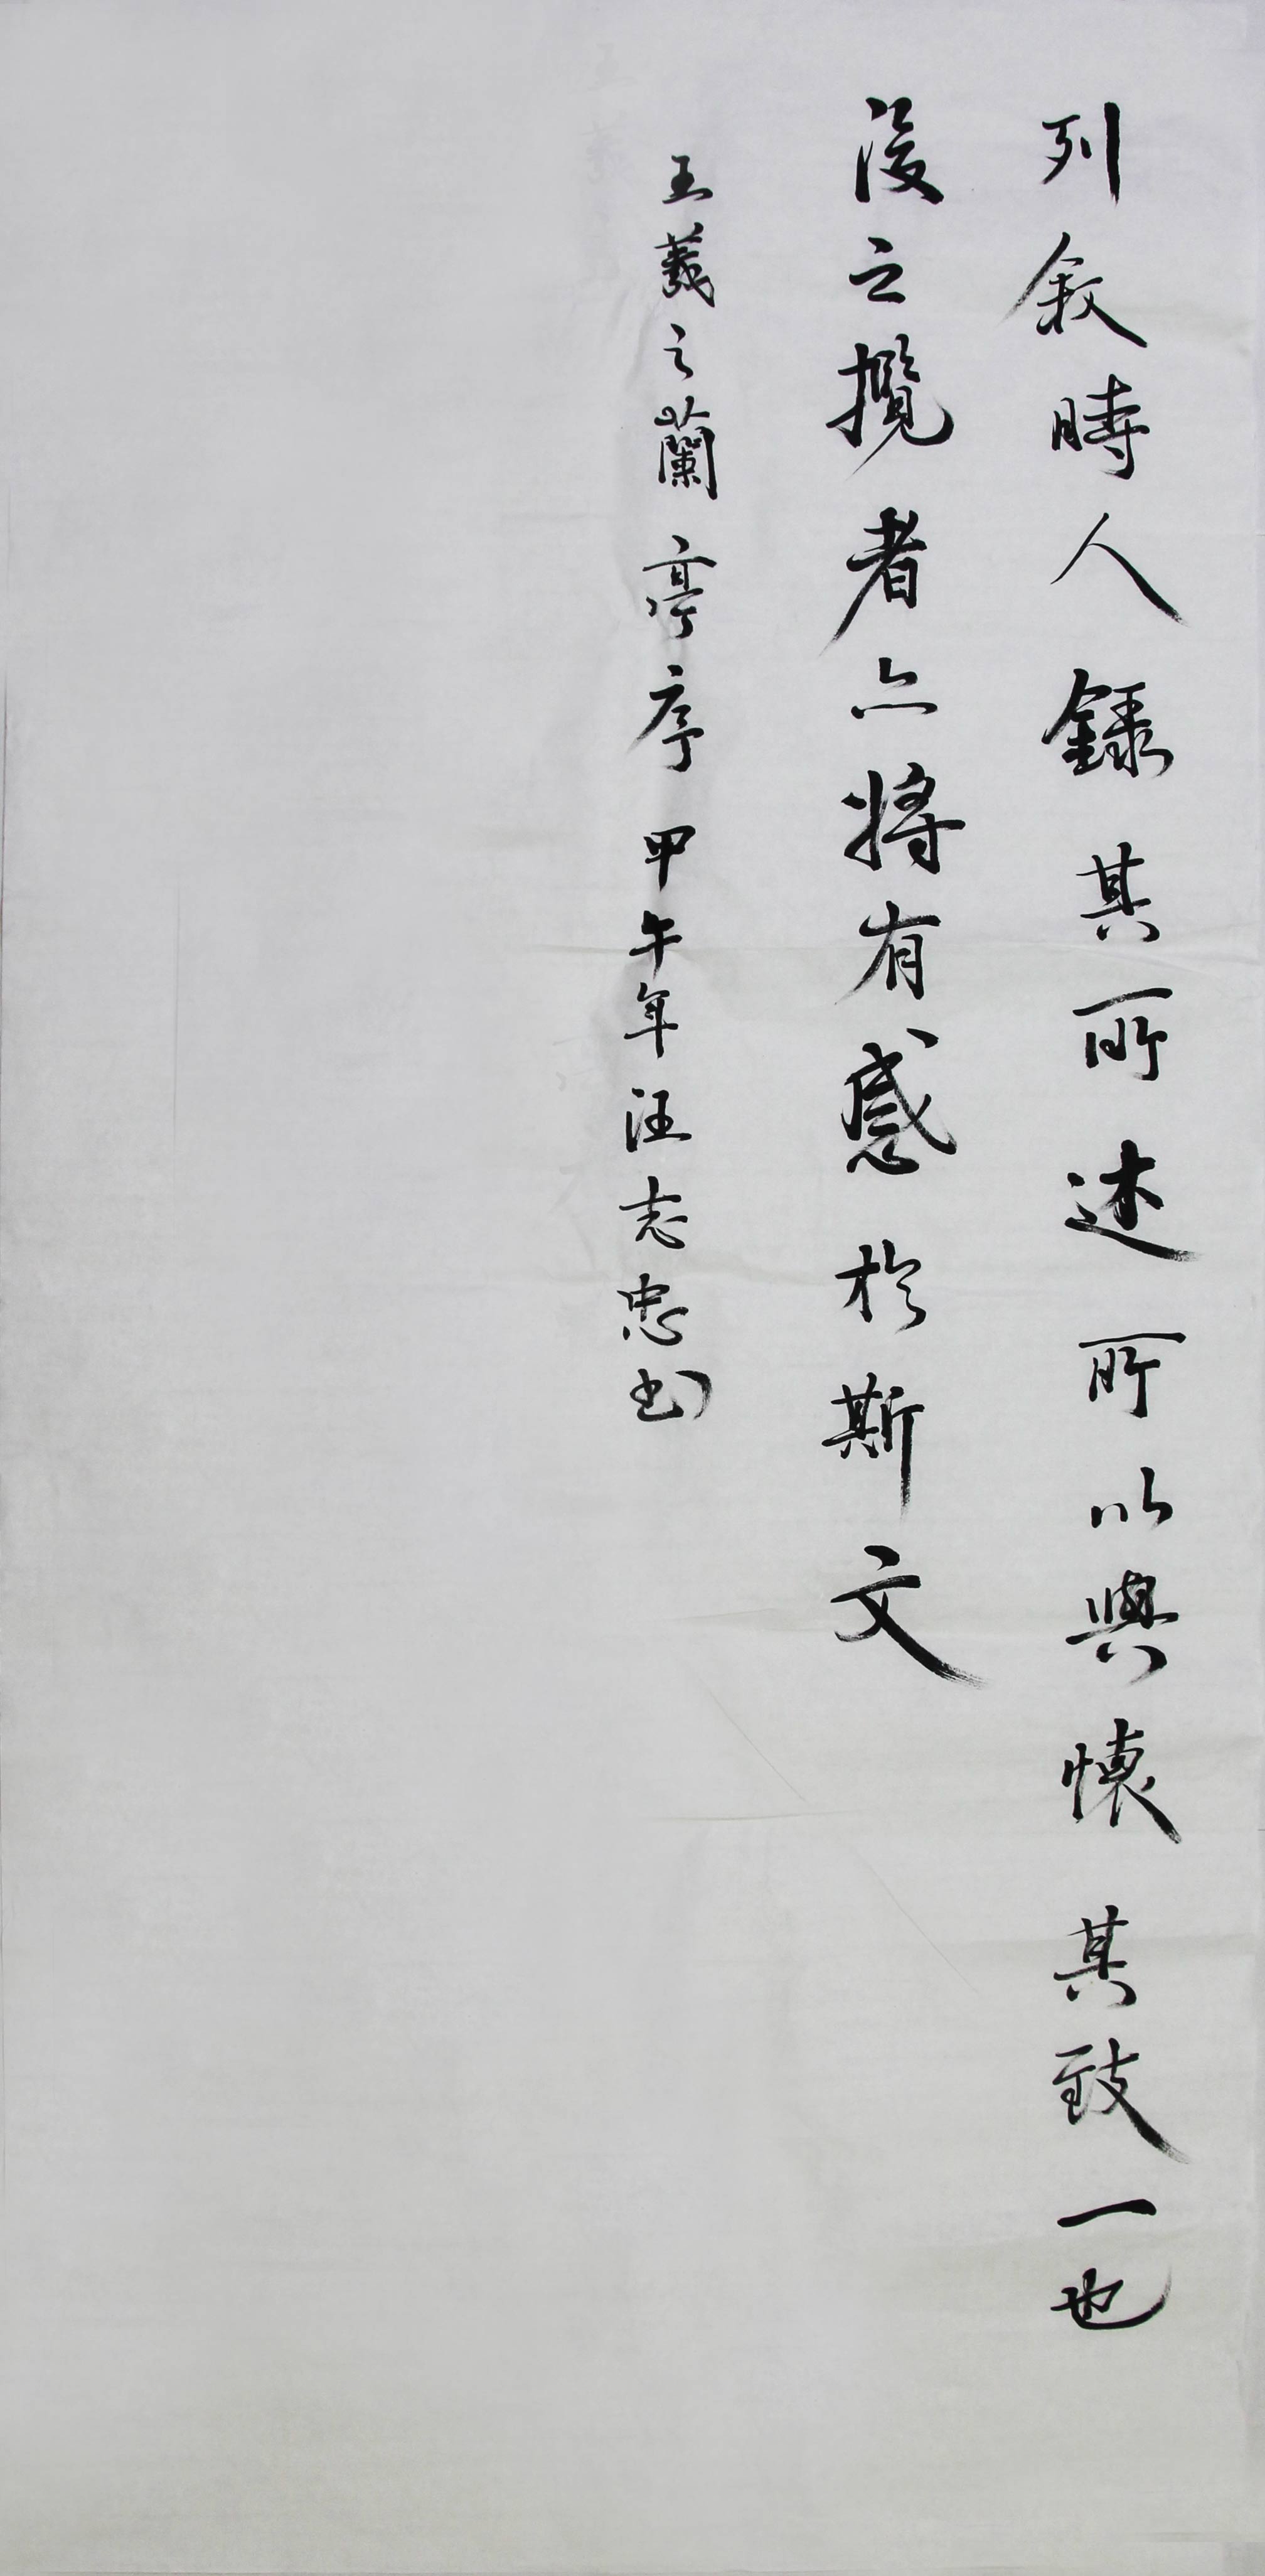 列叙時人錄其所述所以興懷其致一也
後之攬者亦將有感於斯文
王羲之蘭亭序甲午年汪志忠书